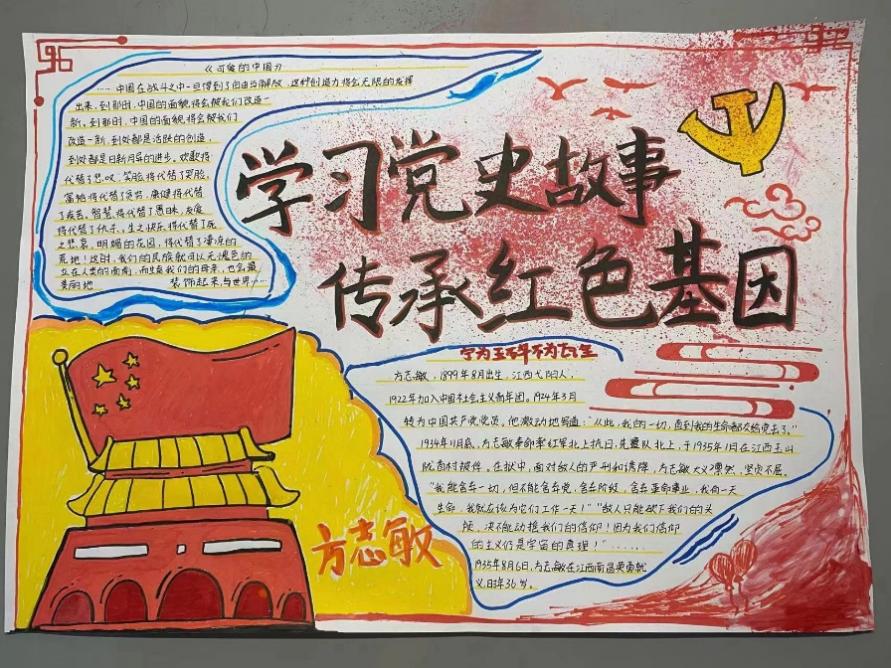 《可爱的中国》
……中国在战斗之中一旦得到了自由与解放，这种创造力将会无限的发挥
出来。到那时，中国的面貌将会被我们改造一
新。到那时，中国的面貌将会被我们
改造一新，到处都是活跃的创造，
到处都是日新月异的进步。欢歌将
代替了悲叹，笑脸将代替了哭脸，
富裕将代替了贫穷，康健将代替
了疾苦，智慧将代替了愚昧，友爱
将代替了仇杀，生之快乐将代替了死
之悲哀，明媚的花园，将代替了凄凉的
荒地！这时，我们的民族就可以无愧色的
立在人类的面前，而生育我们的母亲，也会最
美丽的地 装饰起来，与世界……
学习党史故事
传承红色基因
宁为玉碎不为瓦全
方志敏，1899年8月出生，江西弋阳人，
1922年加入中国社会主义青年团。1924年3月
转为中国共产党党员。他激动地写道：“从此，我的一切，直到我的生命都交给党去了。”
1934年11月底，方志敏奉命率红军北上抗日，先遣队北上，于1935年1月在江西玉山
陇首村被俘。在狱中，面对敌人的严刑和诱降，方志敏大义凛然，坚贞不屈。
“我能舍弃一切，但不能舍弃党，舍弃阶级，舍弃革命事业，我有一天
生命，我就应该为它们工作一天！”“敌人只能砍下我们的头
颅，决不能动摇我们的信仰！因为我们信仰
的主义乃是宇宙的真理！”……
1935年8月6日，方志敏在江西南昌英勇就
义，时年36岁。
方志敏